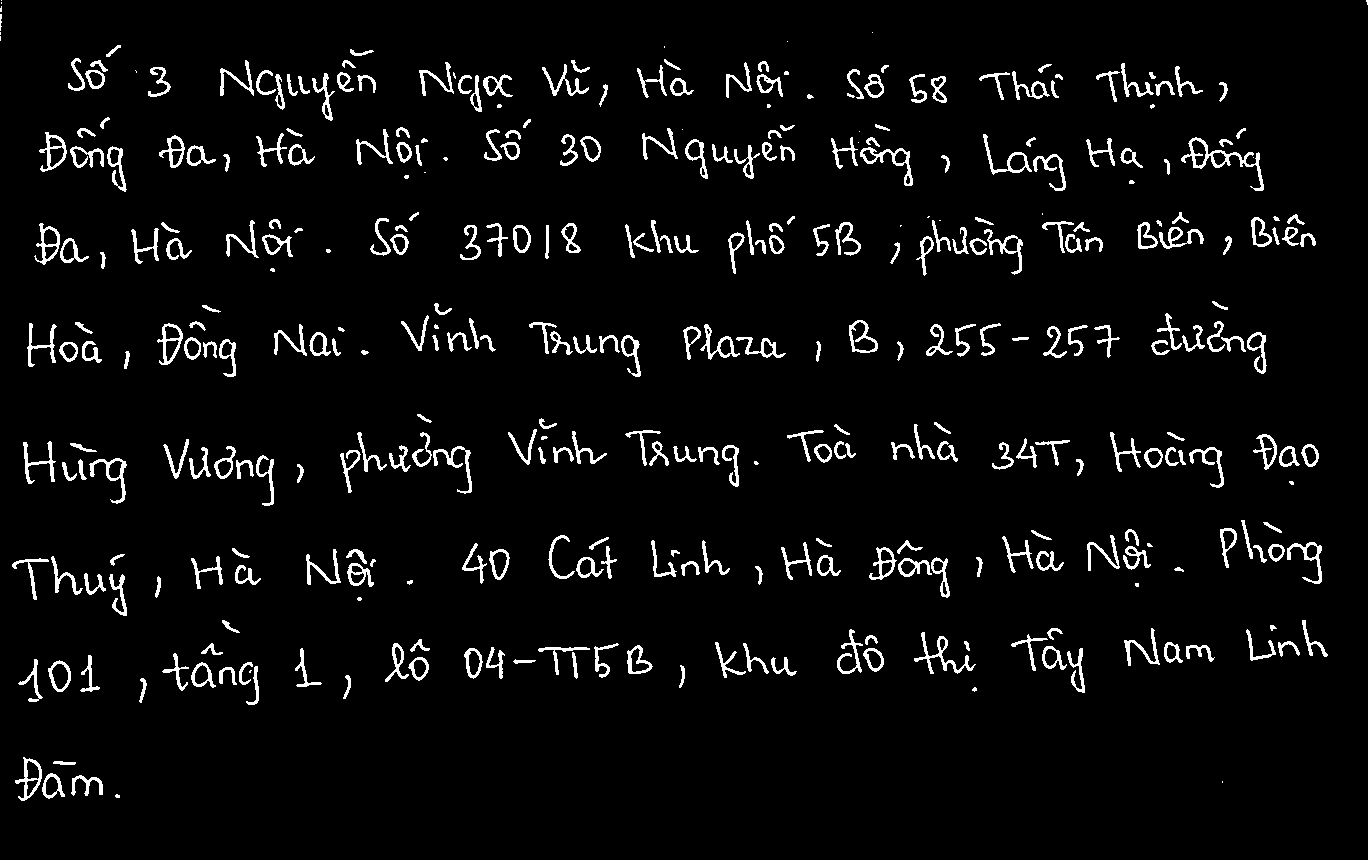 Số 3 Nguyễn Ngọc Vũ, Hà Nội. Số 58 Thái Thịnh,
Đống Đa, Hà Nội. Số 30 Nguyễn Hồng, Láng Hạ, Đống
Đa, Hà Nội. Số 37018 khu phố 5B, phường Tân Biên, Biên
Hoà, Đồng Nai. Vĩnh Trung Plaza, B, 255-257 đường
Hùng Vương, phường Vĩnh Trung. Toà nhà 34T, Hoàng Đạo
Thuý, Hà Nội. 40 Cát Linh, Hà Đông, Hà Nội. Phòng
101, tầng 1, lô 04-TT5B, khu đô thị Tây Nam Linh
Đàm.